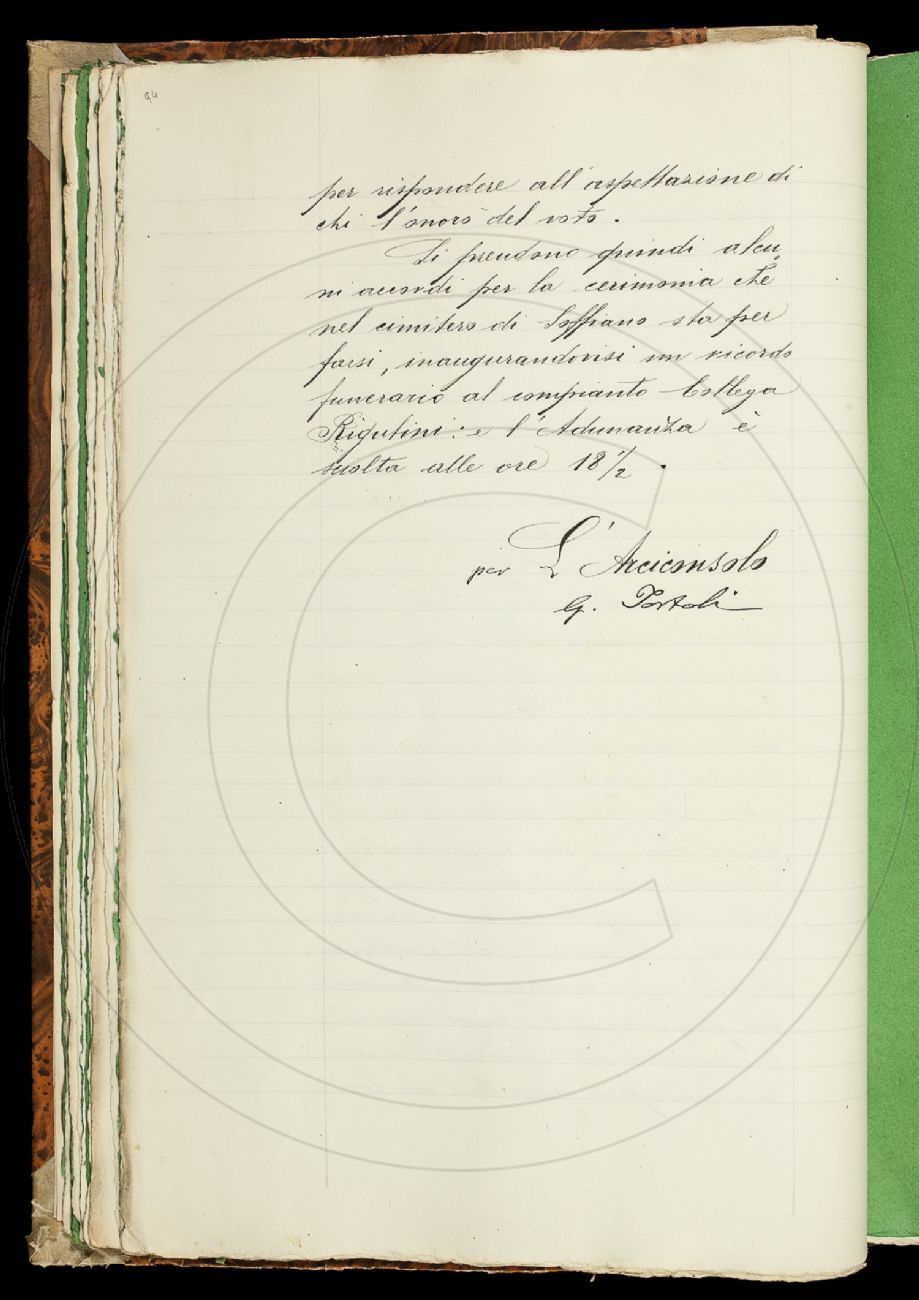 94
per rispondere all'aspettazione di
chi l'onorò del voto.
Si prendono quindi alcu-
ni accordi per la cerimonia che
nel cimitero di Soffiano sta per
farsi, inaugurandovisi un ricordo
funerario al compianto Collega
Rigutini: e l'Adunanza è
sciolta alle ore 18 1/2.
per L'Arciconsolo
G. Tortoli